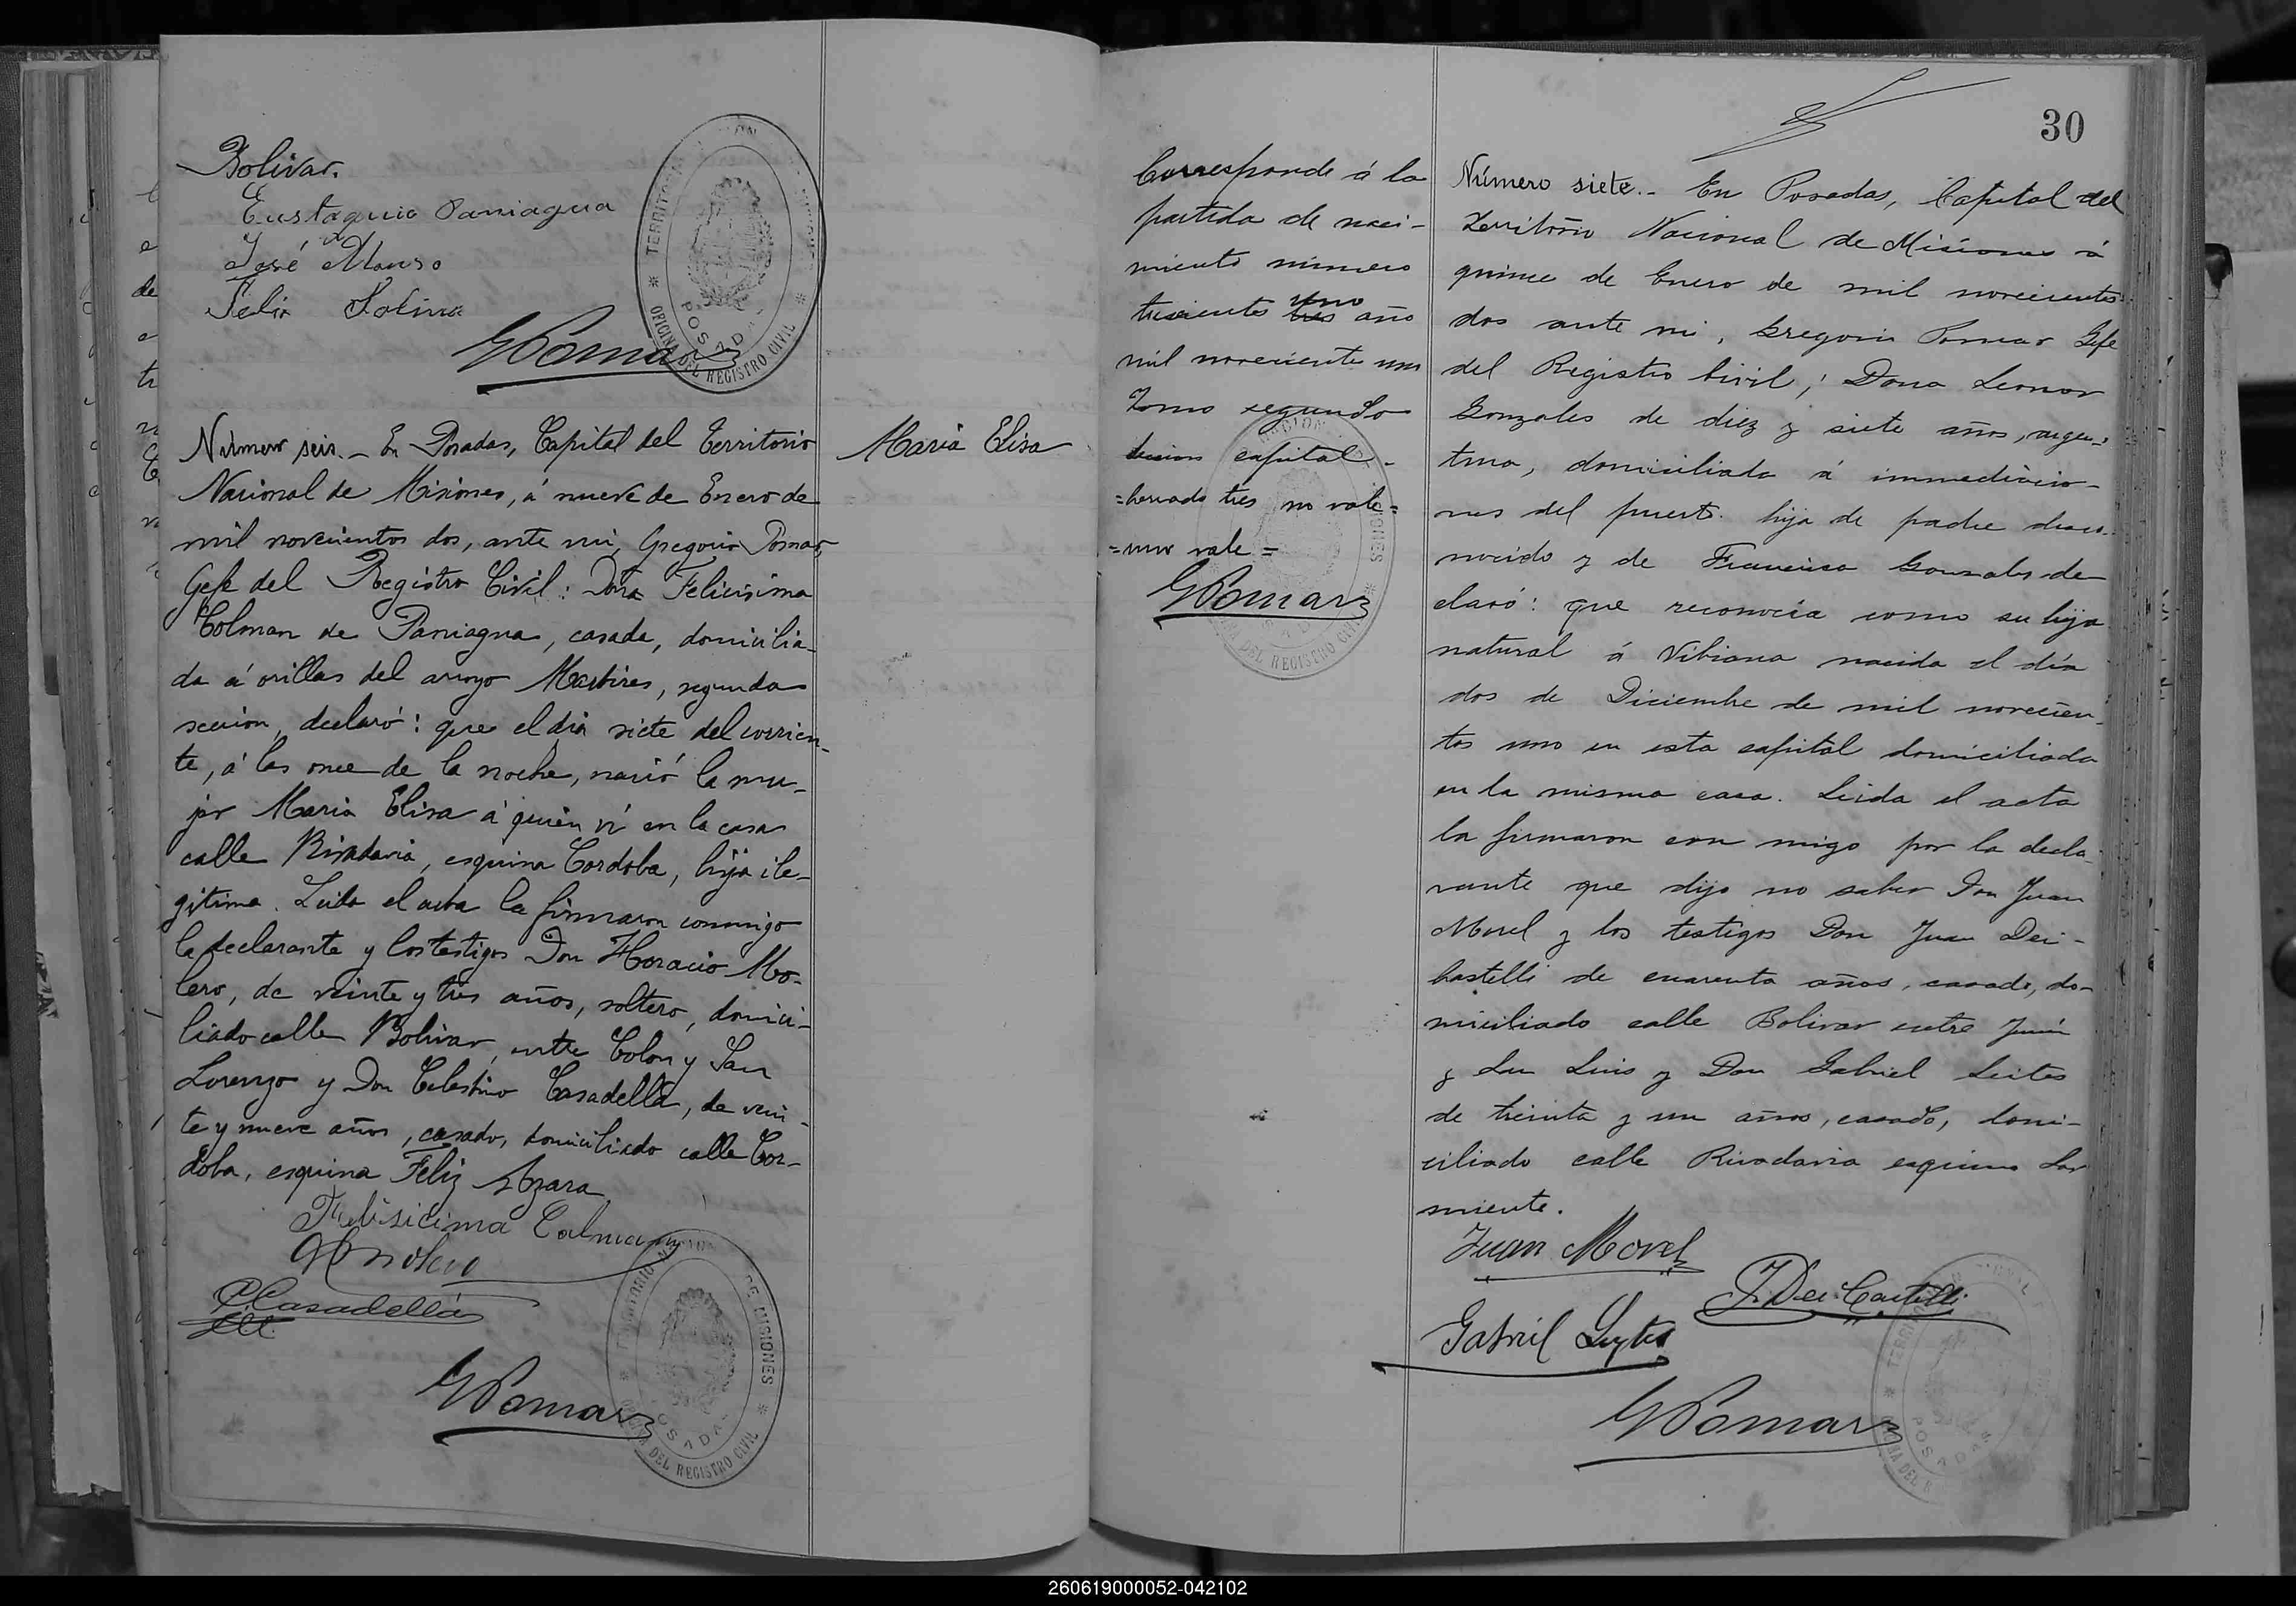 Bolivar.
Eustaquio Paniagua
José Alonso
Felix Solina
GPomar
Número seis. – En Posadas, Capital del Territorio
Nacional de Misiones, á nueve de Enero de
mil novecientos dos, ante mi, Gregorio Pomar,
Gefe del Registro Civil: Doña Felicisima
Colman de Paniagua, casada, domicilia-
da á orillas del arroyo Martires, segunda
seccion, declaró: que el dia siete del corrien-
te, á las once de la noche, nació la mu-
jer Maria Elisa á quien ví en la casa
calle Rivadavia, esquina Cordoba, hija ile-
gitima. Leida el acta la firmaron conmigo
la declarante y los testigos Don Horacio Mo-
lero, de veinte y tres años, soltero, domici-
liado calle Bolivar, entre Colon y San
Lorenzo y Don Celestino Casadellá, de vein-
te y nueve años, casado, domiciliado calle Cor-
doba, esquina Feliz Azara.
Felisicima Calman
HMolero
CCasadellá
GPomar
Maria Elisa
TERRITORIO NACIONAL DE MISIONES
POSADAS
OFICINA DEL REGISTRO CIVIL
30
Corresponde á la
partida de naci-
miento número
trescientos tres uno año
mil novecientos uno
Tomo segundo
seccion capital.
=borrado tres no vale=
=uno vale=
GPomar
Número siete.- En Posadas, Capital del
Territorio Nacional de Misiones á
quince de Enero de mil novecientos
dos ante mi, Gregorio Pomar Gefe
del Registro Civil; Dona Leonor
Gonzales de diez y siete años, argen-
tina, domiciliada á immediacio-
nes del puerto hija de padre desco-
nocido y de Francisca Gonzales de-
claró: que reconocia como su hija
natural á Vibiana nacida el día
dos de Diciembre de mil novecien-
tos uno en esta capital domiciliada
en la misma casa. Leida el acta
la firmaron con migo por la decla-
rante que dijo no saber Don Juan
Morel y los testigos Don Juan Dei-
Castelli de cuarenta años, casado, do-
miciliado calle Bolivar entre Junin
y San Luis y Don Gabriel Leites
de treinta y un años, casado, domi-
ciliado calle Rivadavia esquina Sar
miento.
Juan Morel
J. Dei-Castelli
Gabriel Leytes
GPomar
260619000052-042102